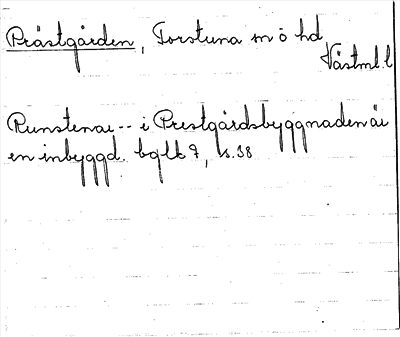 Prästgården, Torstuna sn o hd
Västml. l
Runstenar -- i Prestgårdsbyggnaden är
en inbyggd. bglb 7, s. 38